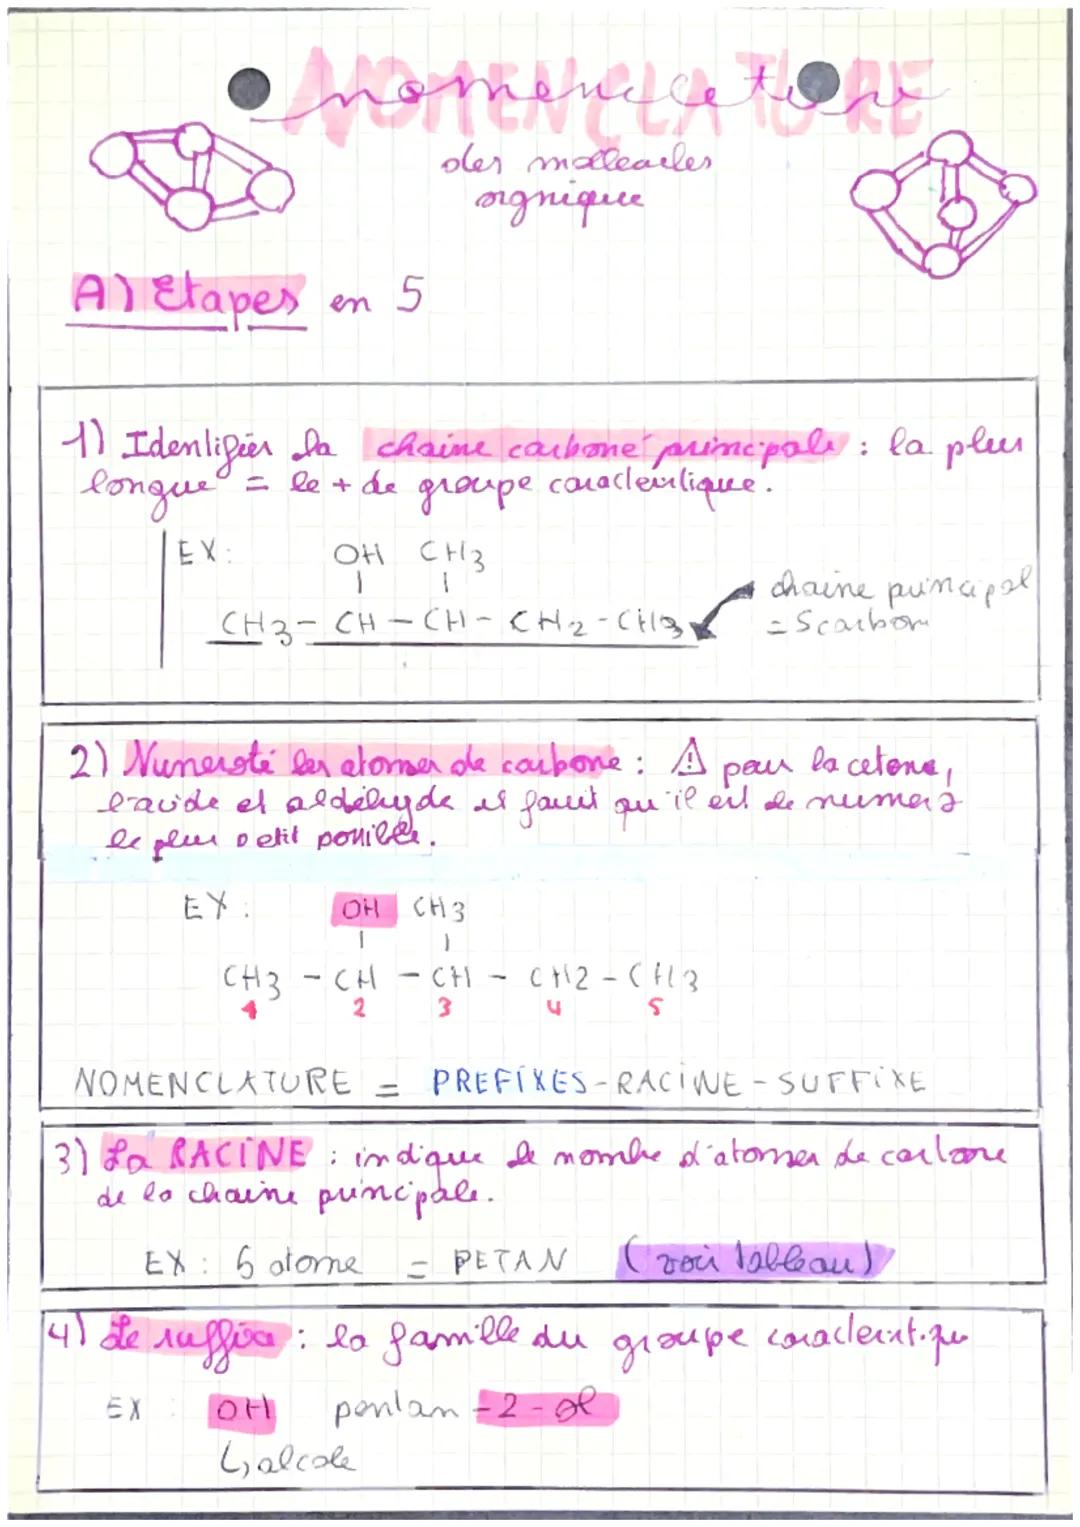 NOMENCLATURE
nomenclature
des molleacles
orgnique
A) Etapes en 5
1) Identifier la chaine carboné principale : la plus
longue = le + de groupe caracteristique.
EX: OH CH3
CH3 - CH - CH - CH2 - CH3
chaine principal
= 5 carbon
2) Numeroté les atomes de carbone : ⚠ pour la cetone,
l'acide et aldéhyde il faut qu'il est le numero
le plus petit possible.
EX: OH CH3
CH3 - CH - CH - CH2 - CH3
1 2 3 4 5
NOMENCLATURE = PREFIXES - RACINE - SUFFIXE
3) La RACINE : indique le nombre d'atomes de carbone
de la chaine principale.
EX : 5 atome = PETAN (voir tableau)
4) Le suffixe : la famille du groupe caracterist.que
EX : OH pentan - 2 - ol
↳ alcole